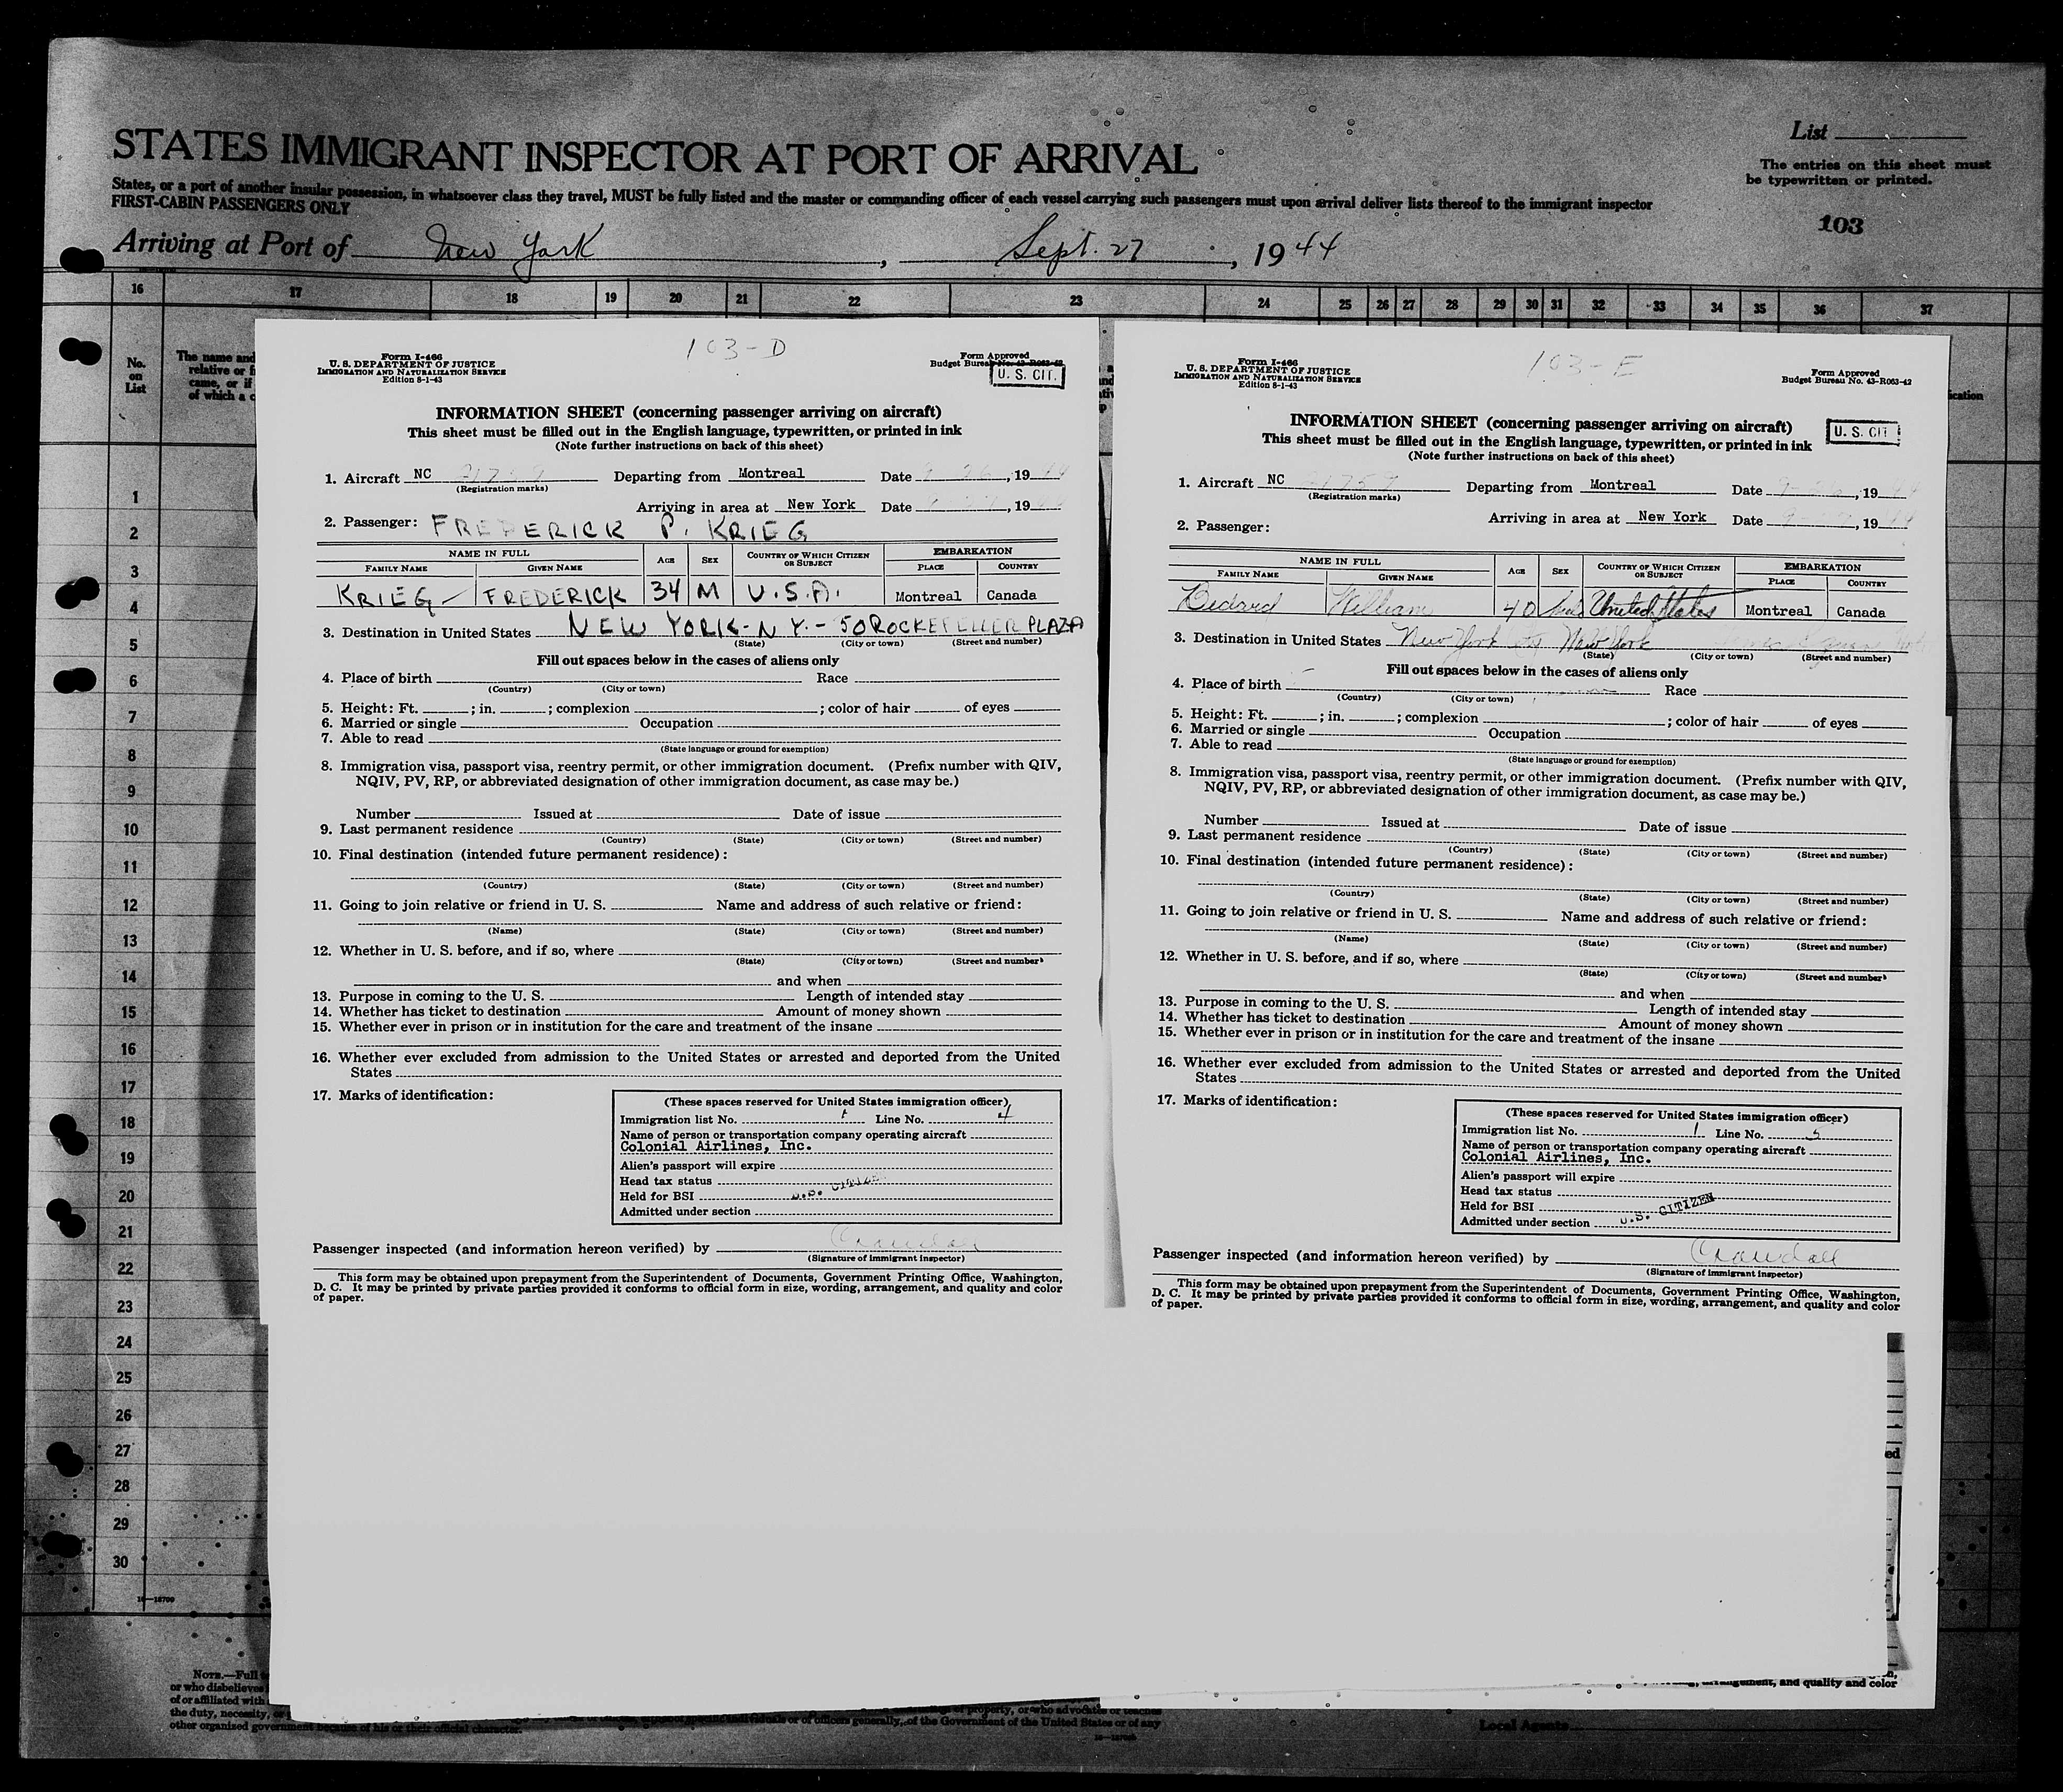 STATES IMMIGRANT INSPECTOR AT PORT OF ARRIVAL
List
The entries on this sheet must
be typewritten or printed.
States, or a port of another insular possession, in whatsoever class they travel, MUST be fully listed and the master or commanding officer of each vessel carrying such passengers must upon arrival deliver lists thereof to the immigrant inspector
FIRST-CABIN PASSENGERS ONLY
103
Arriving at Port of New York, Sept. 27, 1944
16 17 18 19 20 21 22 23 24 25 26 27 28 29 30 31 32 33 34 35 36 37
No.
on
List
The name and
relative or f
came, or if
of which a c
ication
1
2
3
4
5
6
7
8
9
10
11
12
13
14
15
16
17
18
19
20
21
22
23
24
25
26
27
28
29
30
103-D
Form I-466
U. S. DEPARTMENT OF JUSTICE
IMMIGRATION AND NATURALIZATION SERVICE
Edition 8-1-43
Form Approved
Budget Bureau No. 43-R063-42
U. S. CIT.
INFORMATION SHEET (concerning passenger arriving on aircraft)
This sheet must be filled out in the English language, typewritten, or printed in ink
(Note further instructions on back of this sheet)
1. Aircraft NC Departing from Montreal Date 9 26, 1944
(Registration marks)
Arriving in area at New York Date , 19
2. Passenger: FREDERICK P. KRIEG
NAME IN FULL AGE SEX COUNTRY OF WHICH CITIZEN OR SUBJECT EMBARKATION
FAMILY NAME GIVEN NAME PLACE COUNTRY
KRIEG FREDERICK 34 M U.S.A. Montreal Canada
3. Destination in United States NEW YORK - N Y. - 50 ROCKEFELLER PLAZA
(State) (City or town) (Street and number)
Fill out spaces below in the cases of aliens only
4. Place of birth Race
(Country) (City or town)
5. Height: Ft. ; in. ; complexion ; color of hair of eyes
6. Married or single Occupation
7. Able to read
(State language or ground for exemption)
8. Immigration visa, passport visa, reentry permit, or other immigration document. (Prefix number with QIV,
NQIV, PV, RP, or abbreviated designation of other immigration document, as case may be.)
Number Issued at Date of issue
9. Last permanent residence
(Country) (State) (City or town) (Street and number)
10. Final destination (intended future permanent residence):
(Country) (State) (City or town) (Street and number)
11. Going to join relative or friend in U. S. Name and address of such relative or friend:
(Name) (State) (City or town) (Street and number)
12. Whether in U. S. before, and if so, where
(State) (City or town) (Street and number)
and when
13. Purpose in coming to the U. S. Length of intended stay
14. Whether has ticket to destination Amount of money shown
15. Whether ever in prison or in institution for the care and treatment of the insane
16. Whether ever excluded from admission to the United States or arrested and deported from the United
States
17. Marks of identification:
(These spaces reserved for United States immigration officer)
Immigration list No. Line No. 4
Name of person or transportation company operating aircraft
Colonial Airlines, Inc.
Alien's passport will expire
Head tax status
Held for BSI U.S. CITIZEN
Admitted under section
Passenger inspected (and information hereon verified) by Crandall
(Signature of immigrant inspector)
This form may be obtained upon prepayment from the Superintendent of Documents, Government Printing Office, Washington,
D. C. It may be printed by private parties provided it conforms to official form in size, wording, arrangement, and quality and color
of paper.
103-E
Form I-466
U. S. DEPARTMENT OF JUSTICE
IMMIGRATION AND NATURALIZATION SERVICE
Edition 8-1-43
Form Approved
Budget Bureau No. 43-R063-42
U. S. CIT
INFORMATION SHEET (concerning passenger arriving on aircraft)
This sheet must be filled out in the English language, typewritten, or printed in ink
(Note further instructions on back of this sheet)
1. Aircraft NC Departing from Montreal Date , 19
(Registration marks)
Arriving in area at New York Date , 19
2. Passenger:
NAME IN FULL AGE SEX COUNTRY OF WHICH CITIZEN OR SUBJECT EMBARKATION
FAMILY NAME GIVEN NAME PLACE COUNTRY
Bedard William 40 United States Montreal Canada
3. Destination in United States New York City New York
(State) (City or town) (Street and number)
Fill out spaces below in the cases of aliens only
4. Place of birth Race
(Country) (City or town)
5. Height: Ft. ; in. ; complexion ; color of hair of eyes
6. Married or single Occupation
7. Able to read
(State language or ground for exemption)
8. Immigration visa, passport visa, reentry permit, or other immigration document. (Prefix number with QIV,
NQIV, PV, RP, or abbreviated designation of other immigration document, as case may be.)
Number Issued at Date of issue
9. Last permanent residence
(Country) (State) (City or town) (Street and number)
10. Final destination (intended future permanent residence):
(Country) (State) (City or town) (Street and number)
11. Going to join relative or friend in U. S. Name and address of such relative or friend:
(Name) (State) (City or town) (Street and number)
12. Whether in U. S. before, and if so, where
(State) (City or town) (Street and number)
and when
13. Purpose in coming to the U. S. Length of intended stay
14. Whether has ticket to destination Amount of money shown
15. Whether ever in prison or in institution for the care and treatment of the insane
16. Whether ever excluded from admission to the United States or arrested and deported from the United
States
17. Marks of identification:
(These spaces reserved for United States immigration officer)
Immigration list No. 1 Line No. 5
Name of person or transportation company operating aircraft
Colonial Airlines, Inc.
Alien's passport will expire
Head tax status
Held for BSI
Admitted under section U.S. CITIZEN
Passenger inspected (and information hereon verified) by Crandall
(Signature of immigrant inspector)
This form may be obtained upon prepayment from the Superintendent of Documents, Government Printing Office, Washington,
D. C. It may be printed by private parties provided it conforms to official form in size, wording, arrangement, and quality and color
of paper.
ed
16-18709
NOTE.—Full
or who disbelieves
of or affiliated with
the duty, necessity, or
other organized government because of his or their official character.
property, or who advocates or teaches
or of officers generally, of the Government of the United States or of any
arrangement, and quality and color
Local Agents